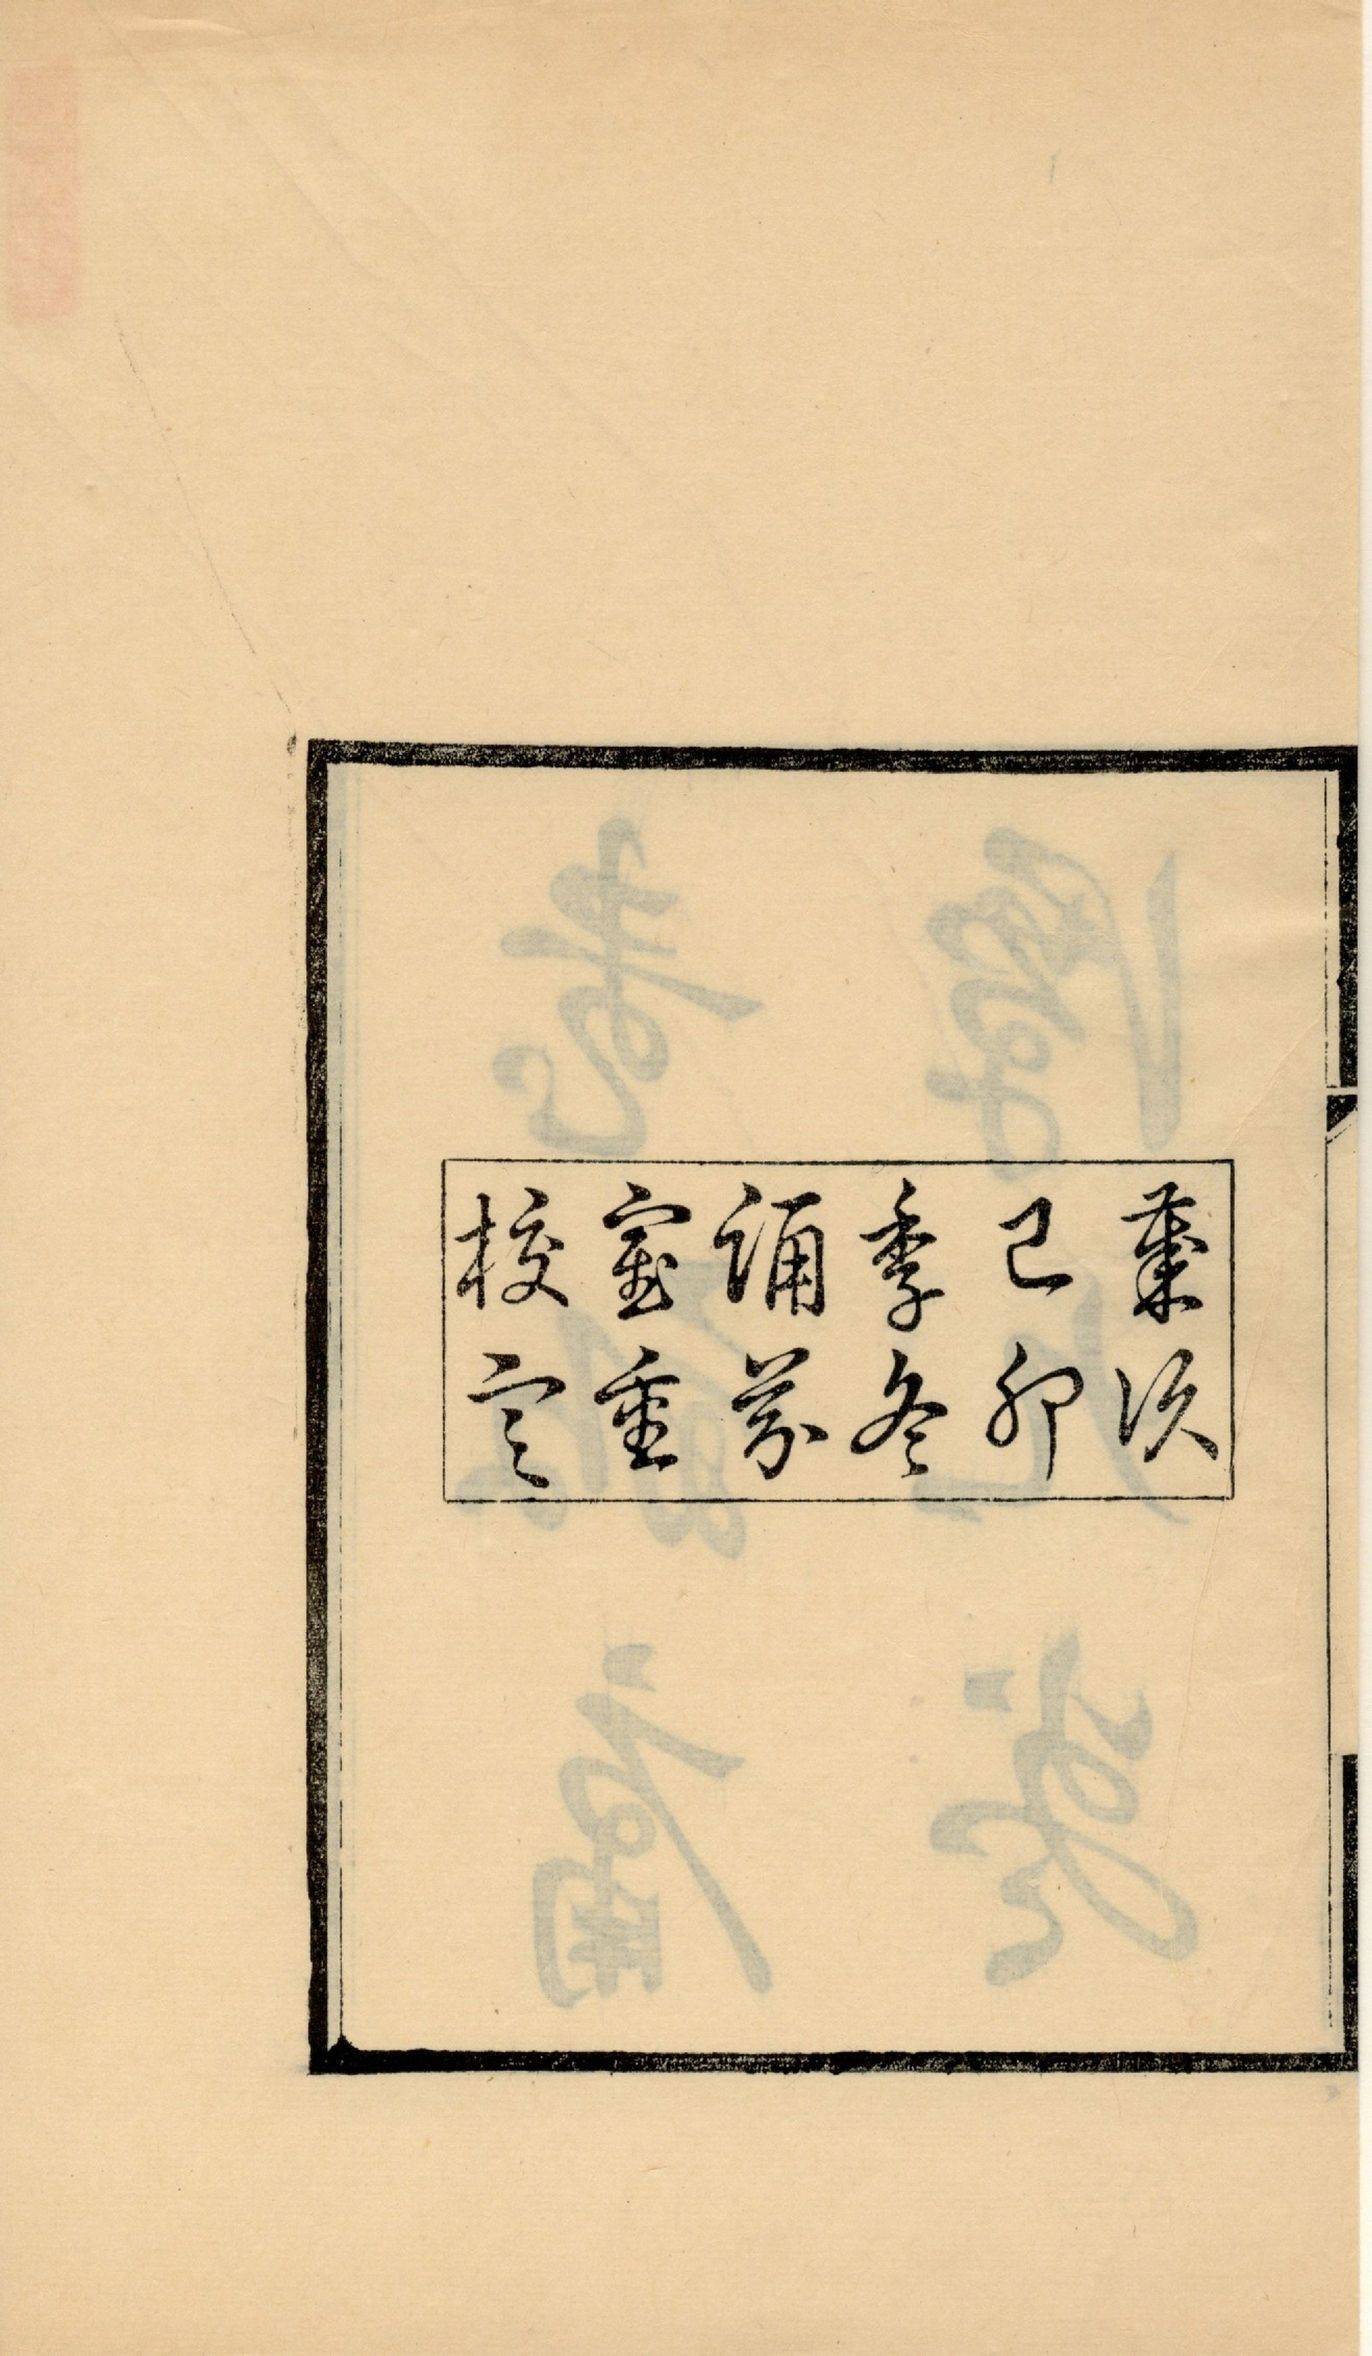 歲次
己卯
季冬
誦芬
室重
校定